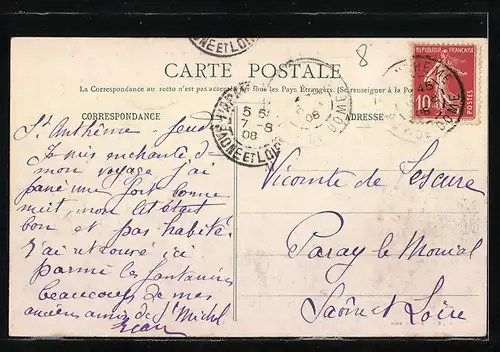 8
CARTE POSTALE
La Correspondance au recto n'est pas acceptée par tous les Pays Étrangers. (Se renseigner à la Poste)
CORRESPONDANCE
ADRESSE
RÉPUBLIQUE FRANÇAISE
10
POSTES
SAONE ET LOIRE
08
PUY-DE-DOME
St Anthème - Jeudi
Je suis enchanté de
mon voyage j'ai
passé une fort bonne
nuit, mon lit était
bon et pas habité.
J'ai retrouvé ici
parmi les
beaucoup de mes
anciens amis de St Michel
Jean
Vicomte de Lescure
Paray le Monial
Saône et Loire